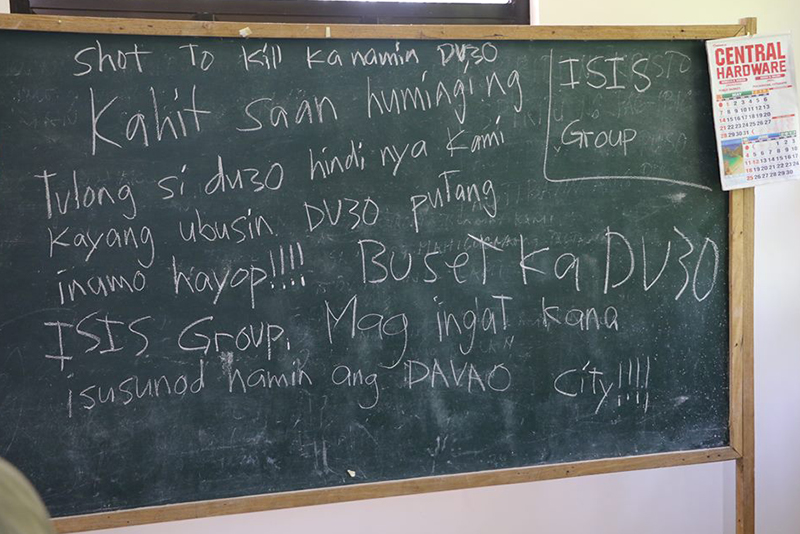 Shot To Kill Ka namin DU30
Kahit saan huminging
Tulong si du30 hindi nya Kami
Kayang ubusin DU30 putang
inamo hayop!!!! Buset Ka DU30
ISIS Group. Mag ingat kana
isusunod namin ang DAVAO City!!!!
ISIS
Group
CENTRAL
HARDWARE